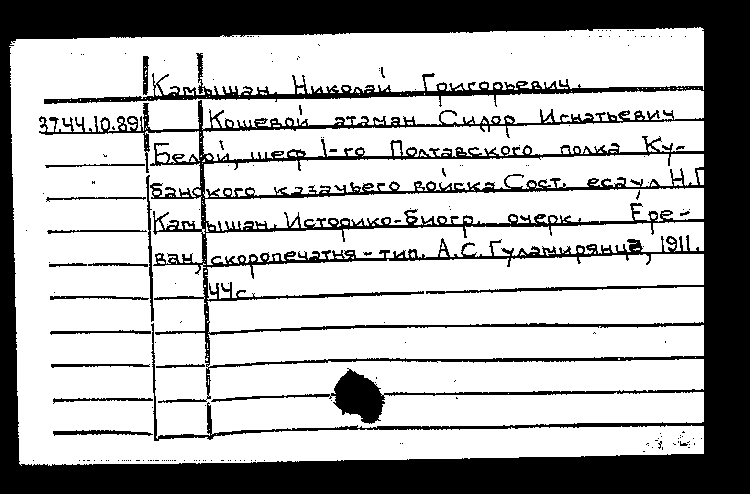 Камышан, Николай Григорьевич.
37.44.10.891 Кошевой атаман Сидор Игнатьевич
Белой, шеф 1-го Полтавского полка Ку-
банского казачьего войска. Сост. есаул Н.Г
Камышан. Историко-биогр. очерк. Ере-
ван, скоропечатня-тип. А.С. Гуламирянца, 1911.
44с.